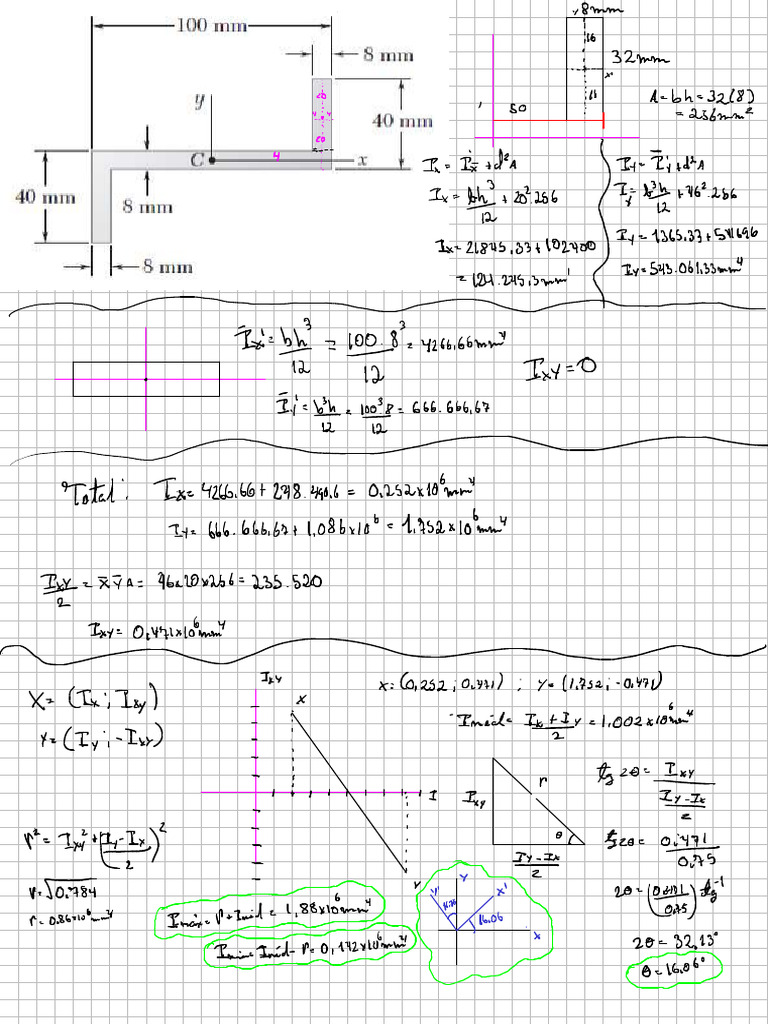 100 mm
8 mm
y
40 mm
C
x
4
40 mm
8 mm
8 mm
20
4 4
20
8mm
16
32mm
x'
50
A = bh = 32(8)
= 256mm²
Ix = Īx' + d²A
Ix = bh³/12 + 20².256
Ix = 21845,33 + 102400
= 124.245,3mm⁴
Iy = Īy' + d²A
Iy = b³h/12 + 46².256
Iy = 1365,33 + 541696
Iy = 543.061,33mm⁴
Īx' = bh³/12 = 100.8³/12 = 4266,66mm⁴
Ixy = 0
Īy' = b³h/12 = 100³.8/12 = 666.666,67
Total: Ix = 4266,66 + 248.490,6 = 0,252x10⁶mm⁴
Iy = 666.666,67 + 1,086x10⁶ = 1,752x10⁶mm⁴
Ixy/2 = x̄ȳA = 46x20x256 = 235.520
Ixy = 0,471x10⁶mm⁴
X = (Ix ; Ixy)
Y = (Iy ; -Ixy)
Ixy
X
I
Y
X = (0,252 ; 0,471) ; Y = (1,752 ; -0,471)
Imed = Ix + Iy/2 = 1,002x10⁶mm⁴
Ixy
r
θ
Iy-Ix/2
tg 2θ = Ixy/(Iy-Ix/2)
tg 2θ = 0,471/0,75
2θ = (0,471/0,75) tg⁻¹
2θ = 32,13°
θ = 16,06°
r² = Ixy² + (Iy-Ix/2)²
r = √0,784
r = 0,86x10⁶mm⁴
Imáx = r + Imed = 1,88x10⁶mm⁴
Imin = Imed - r = 0,142x10⁶mm⁴
Y'
Y
X'
16,06
X